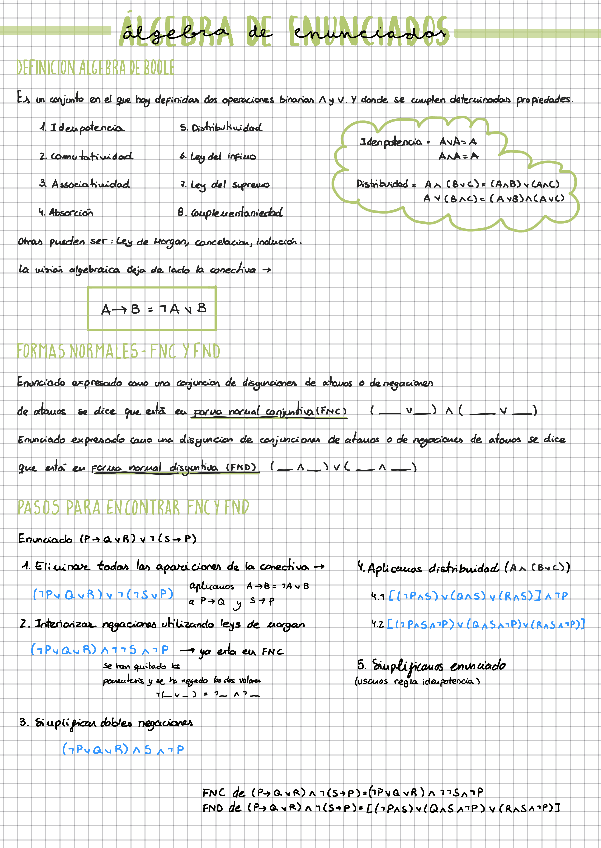 ÁLGEBRA DE ENUNCIADOS
álgebra de enunciados
DEFINICION ALGEBRA DE BOOLE
Es un conjunto en el que hay definidas dos operaciones binarias ∧ y ∨. Y donde se cumplen determinadas propiedades.
1. Idempotencia
2. Conmutatividad
3. Associatividad
4. Absorción
5. Distributividad
6. Ley del ínfimo
7. Ley del supremo
8. Complementariedad
Idenpotencia = A∨A=A
A∧A=A
Distribuidad = A∧(B∨C)=(A∧B)∨(A∧C)
A∨(B∧C)=(A∨B)∧(A∨C)
Otras pueden ser: Ley de Morgan, cancelación, inducción.
La visión algebraica deja de lado la conectiva →
A→B = ¬A∨B
FORMAS NORMALES - FNC Y FND
Enunciado expresado como una conjuncion de disyunciones de atomos o de negaciones
de atomos se dice que está en forma normal conjuntiva (FNC) (__∨__)∧(__∨__)
Enunciado expresado como una disyuncion de conjunciones de atomos o de negaciones de atomos se dice
que está en forma normal disyuntiva (FND) (__∧__)∨(__∧__)
PASOS PARA ENCONTRAR FNC Y FND
Enunciado (P→Q∨R)∨¬(S→P)
1. Eliminar todas las apariciones de la conectiva →
(¬P∨Q∨R)∨¬(¬S∨P)
aplicamos A→B=¬A∨B
a P→Q y S→P
2. Interiorizar negaciones utilizando leys de morgan
(¬P∨Q∨R)∧¬¬S∧¬P → ya esta en FNC
se han quitado los
parentesis y se ha negado los dos valores
¬(_∨_) = ¬_∧¬_
3. Simplificar dobles negaciones
(¬P∨Q∨R)∧S∧¬P
4. Aplicamos distribuidad (A∧(B∨C))
4.1 [(¬P∧S)∨(Q∧S)∨(R∧S)]∧¬P
4.2 [(¬P∧S∧¬P)∨(Q∧S∧¬P)∨(R∧S∧¬P)]
5. Simplificamos enunciado
(usamos regla idempotencia)
FNC de (P→Q∨R)∧¬(S→P)=(¬P∨Q∨R)∧¬¬S∧¬P
FND de (P→Q∨R)∧¬(S→P)=[(¬P∧S)∨(Q∧S∧¬P)∨(R∧S∧¬P)]